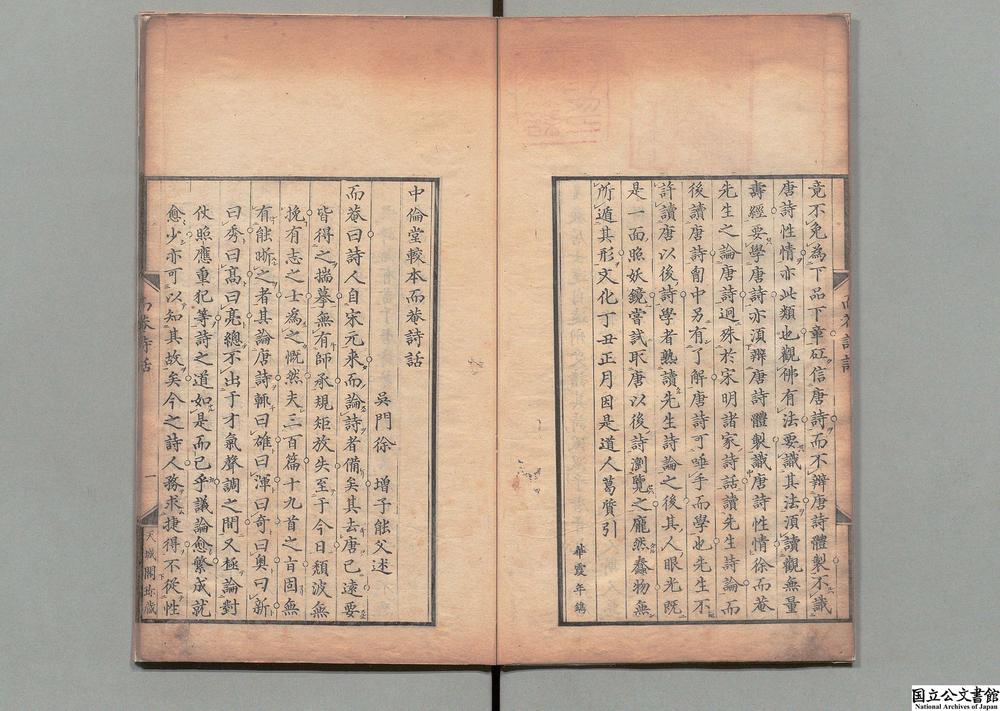 竟不免為下品下章矼信唐詩而不辨唐詩體製不識
唐詩性情亦此類也觀佛有法要識其法須讀觀無量
壽經要學唐詩亦須辨唐詩體製識唐詩性情徐而菴
先生之論唐詩迥殊於宋明諸家詩話讀先生詩論而
後讀唐詩胷中另有了解唐詩可唾手而學也先生不
許讀唐以後詩學者熟讀先生詩論之後其人眼光既
是一面照妖鏡嘗試取唐以後詩瀏覽之龐然蠢物無
所遁其形文化丁丑正月因是道人葛質引
華霞年鐫
中倫堂較本而菴詩話
吳門徐 增子能父述
而菴曰詩人自宋元来而論詩者備矣其去唐已遠要
皆得之揣摹無有師承規矩放失至于今日頹波無
挽有志之士為之慨然夫三百篇十九首之旨固無
有能晰之者其論唐詩輒曰雄曰渾曰奇曰奥曰新
曰秀曰髙曰亮總不出于才氣聲調之間又極論對
仗照應重犯等詩之道如是而已乎議論愈繁成就
愈少亦可以知其故矣今之詩人務求捷得不從性
而菴詩話
一
天城閣珎藏
国立公文書館
National Archives of Japan